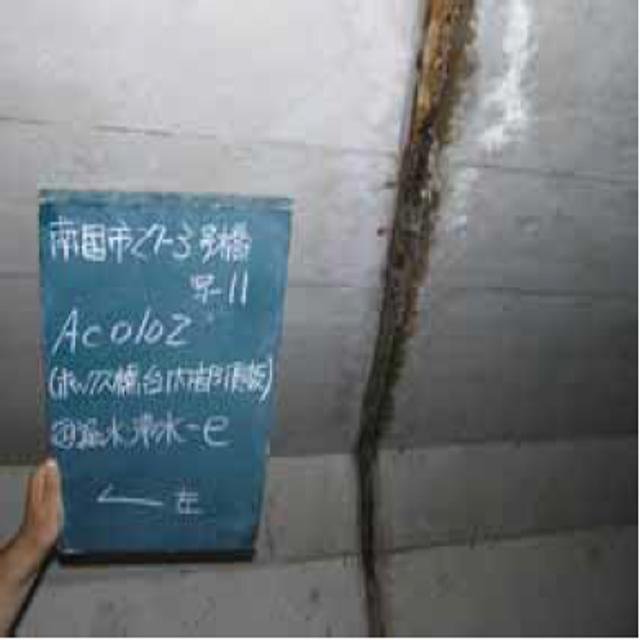 南国市27-3号橋
写-11
Ac0102
(ボックス橋台内部頂版)
⑳漏水滞水-e
← 左